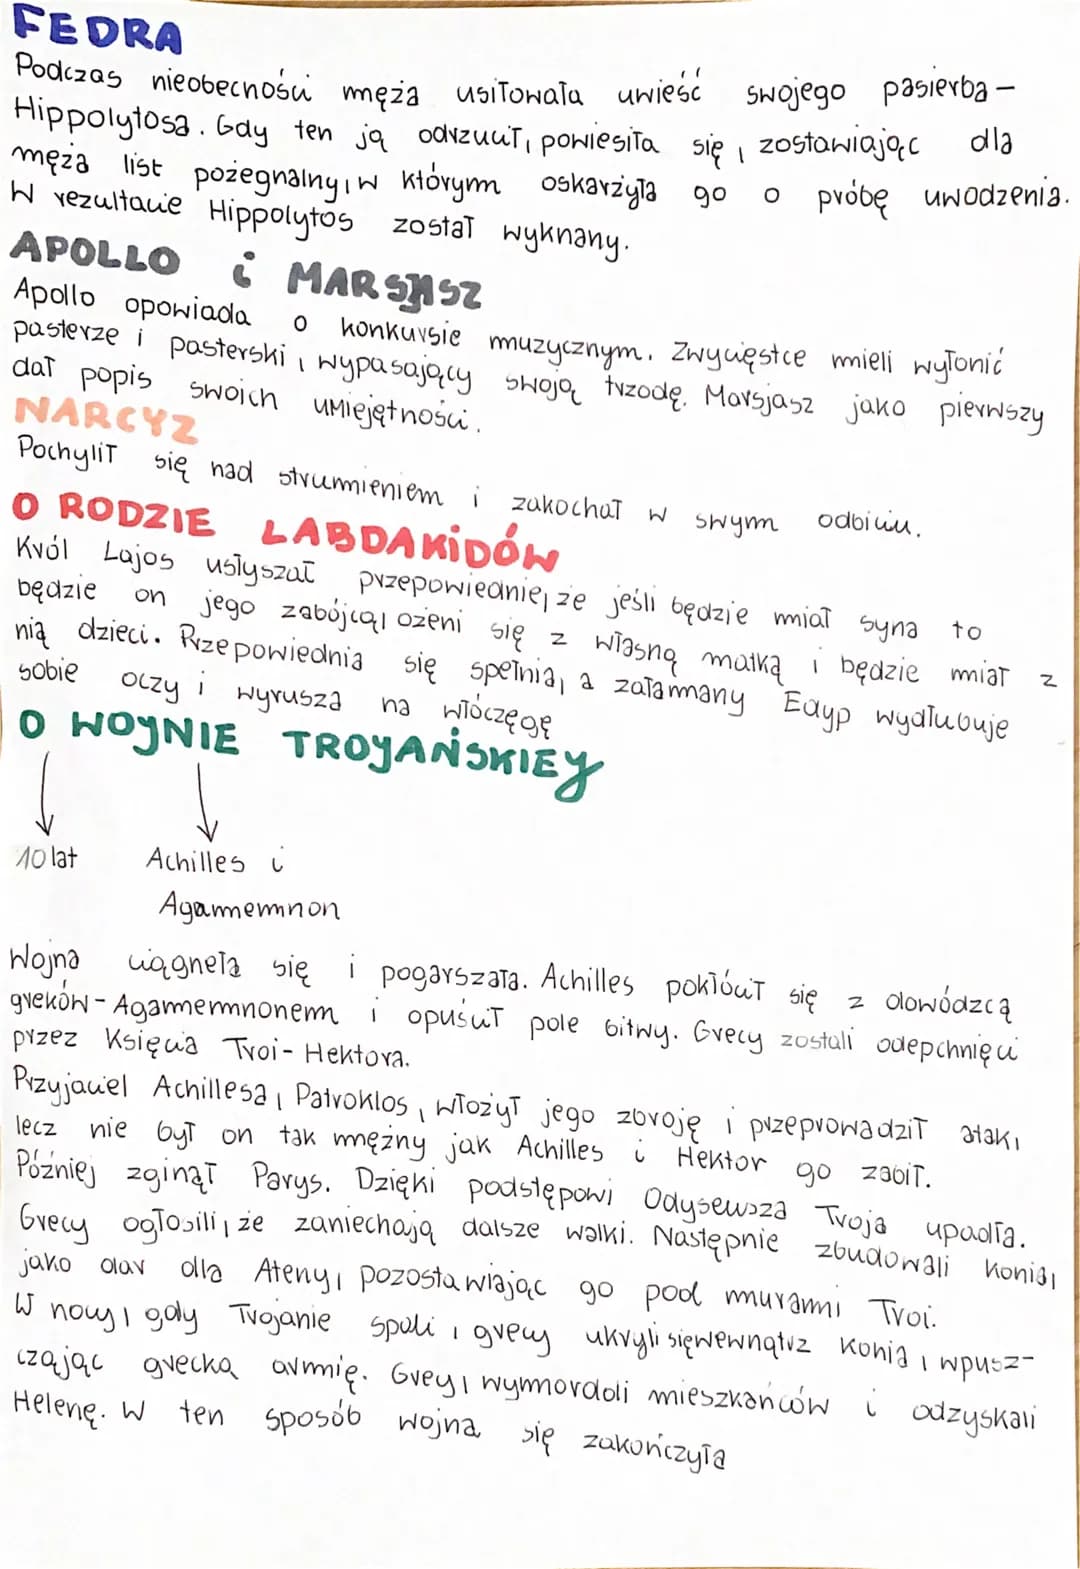 FEDRA
Podczas nieobecności męża usiłowała uwieść swojego pasierba –
Hippolytosa. Gdy ten ją odrzucił, powiesiła się, zostawiając dla
męża list pożegnalny, w którym oskarżyła go o próbę uwodzenia.
W rezultacie Hippolytos został wyknany.
APOLLO i MARSJASZ
Apollo opowiada o konkursie muzycznym. Zwycięstce mieli wyłonić
pasterze i pasterski, wypasający swoją trzodę. Marsjasz jako pierwszy
dał popis swoich umiejętności.
NARCYZ
Pochylił się nad strumieniem i zakochał w swym odbiciu.
O RODZIE LABDAKIDÓW
Król Lajos usłyszał przepowiednię, że jeśli będzie miał syna to
będzie on jego zabójcą, ożeni się z własną matką i będzie miał z
nią dzieci. Przepowiednia się spełnia, a załamany Edyp wydłubuje
sobie oczy i wyrusza na włóczęgę
O WOJNIE TROJAŃSKIEJ
10 lat Achilles i
Agamemnon
Wojna ciągneła się i pogarszała. Achilles pokłócił się z dowódzcą
greków - Agamemnonem i opuścił pole bitwy. Grecy zostali odepchnięci
przez Księcia Troi - Hektora.
Przyjaciel Achillesa, Patroklos, włożył jego zbroję i przeprowadził atak,
lecz nie był on tak mężny jak Achilles i Hektor go zabił.
Później zginął Parys. Dzięki podstępowi Odysewsza Troja upadła.
Grecy ogłosili, że zaniechają dalsze walki. Następnie zbudowali konia,
jako dar dla Ateny, pozostawiając go pod murami Troi.
W nocy, gdy Trojanie spali, grecy ukryli się wewnątrz konia, wpusz-
czając grecką armię. Grecy, wymordoli mieszkańców i odzyskali
Helenę. W ten sposób wojna się zakończyła